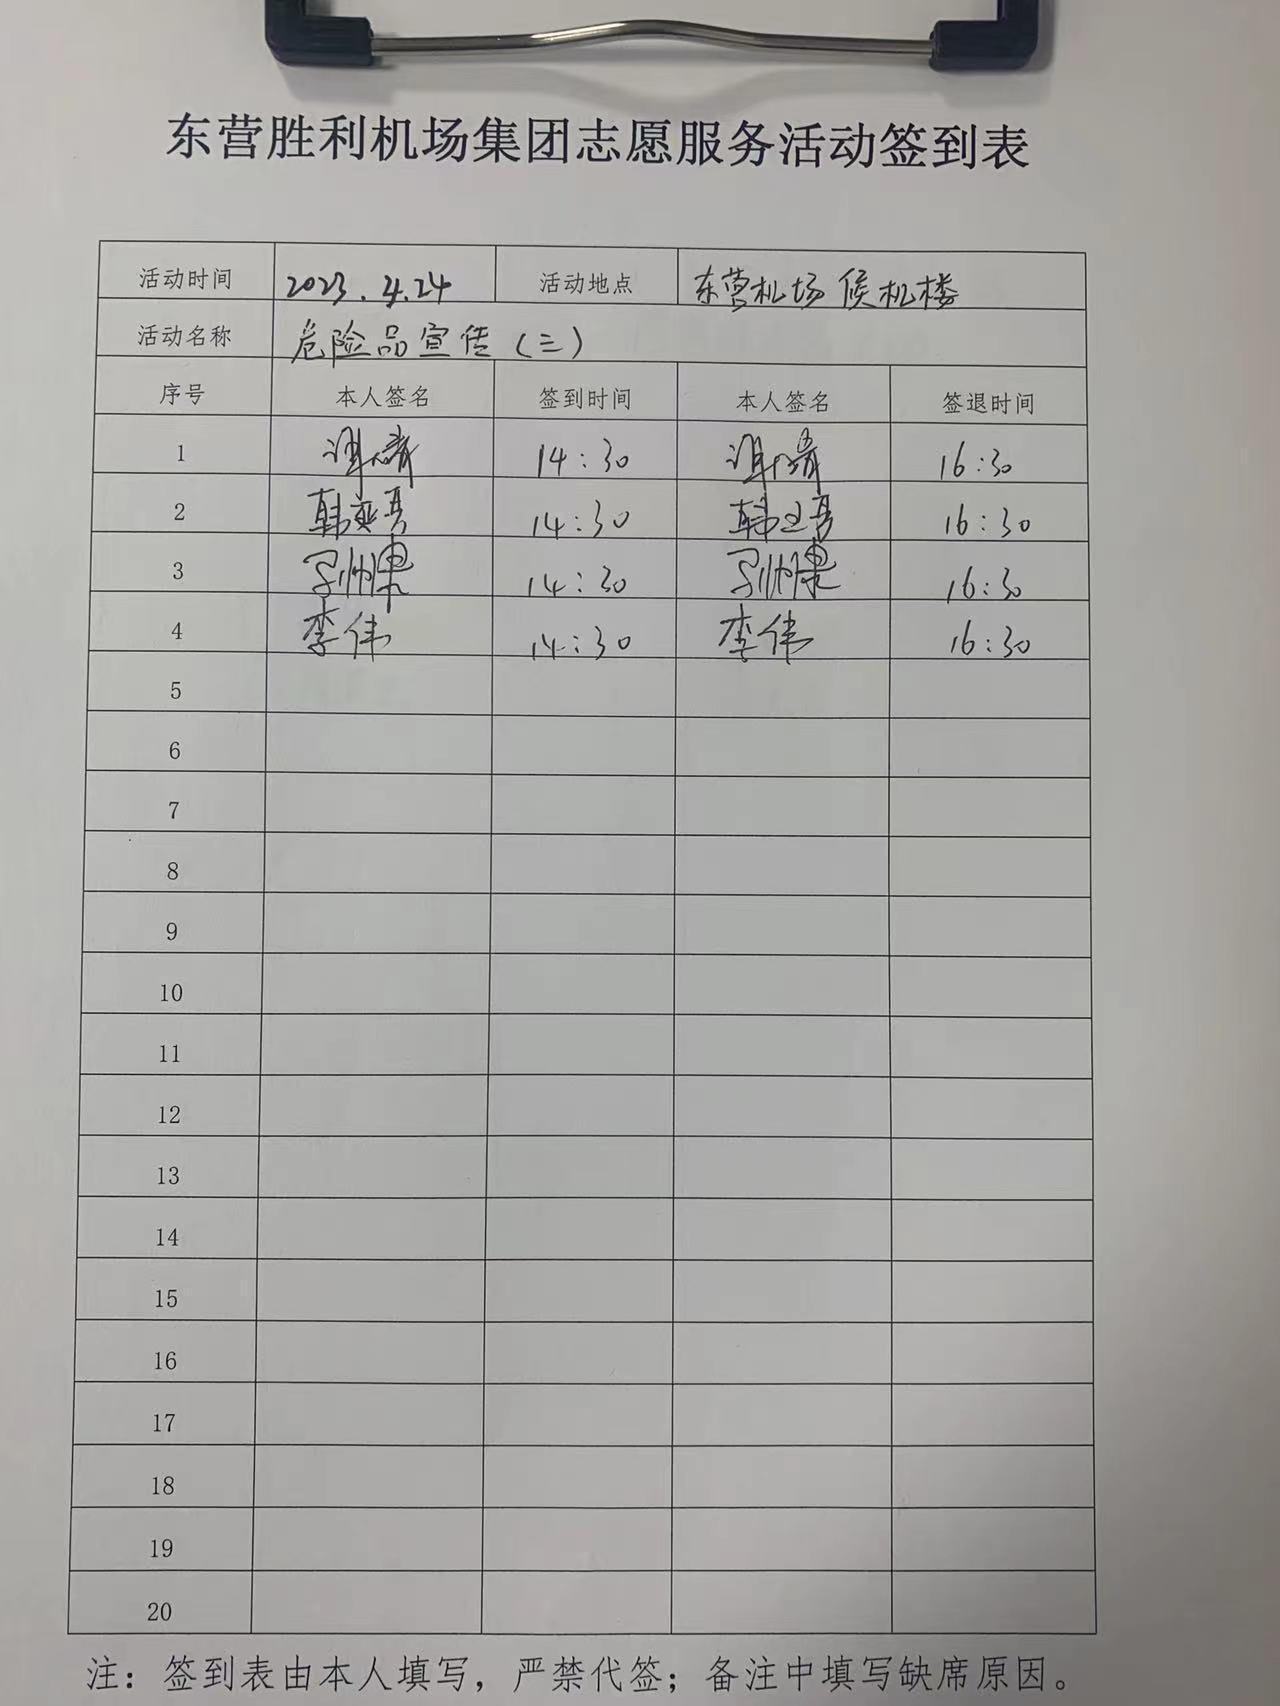 东营胜利机场集团志愿服务活动签到表
活动时间 2023.4.24 活动地点 东营机场 候机楼
活动名称 危险品宣传（三）
序号 本人签名 签到时间 本人签名 签退时间
1 14:30 16:30
2 韩 14:30 韩 16:30
3 14:30 16:30
4 李伟 14:30 李伟 16:30
5
6
7
8
9
10
11
12
13
14
15
16
17
18
19
20
注：签到表由本人填写，严禁代签；备注中填写缺席原因。